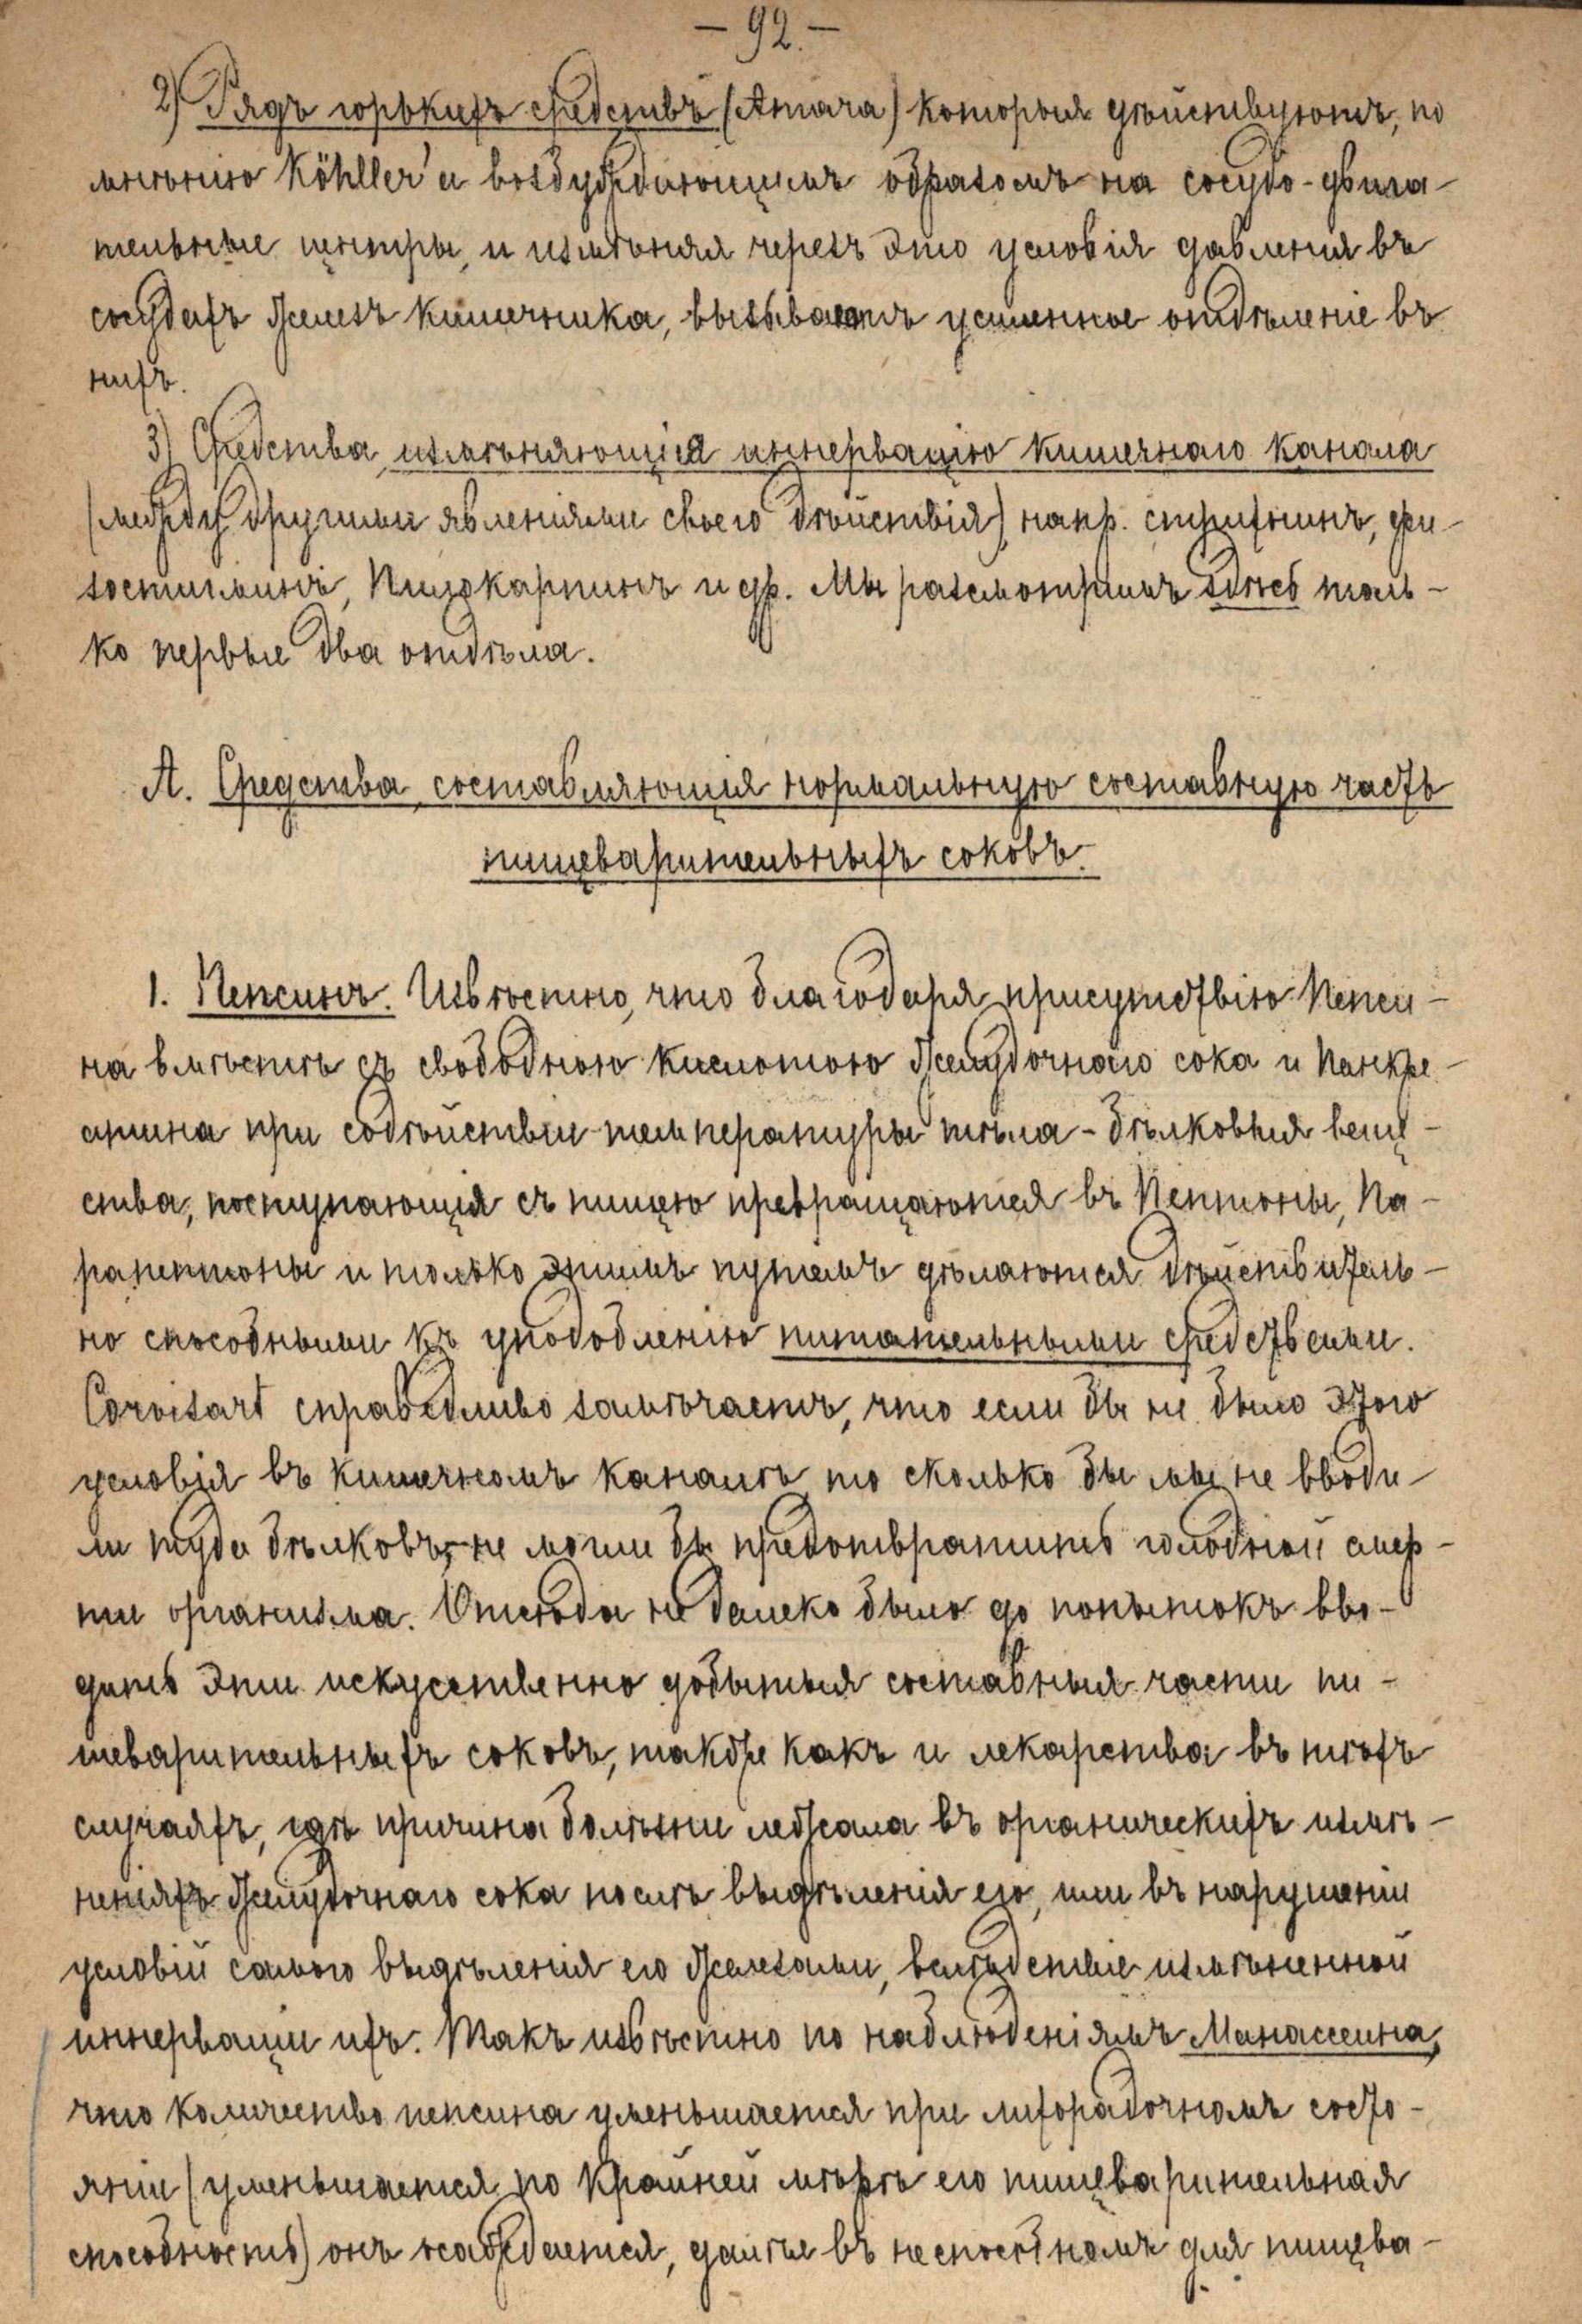 — 92. —
2) Рядъ горькихъ средствъ (Amara) которыя дѣйствуютъ, по
мнѣнію Köhller'а возбуждающимъ образомъ на сосудо-двига-
тельные центры, и измѣняя черезъ это условія давленія въ
сосудахъ железъ кишечника, вызываютъ усиленное отдѣленіе въ
нихъ.
3) Средства, измѣняющія иннервацію кишечнаго канала
(между другими явленіями своего дѣйствія), напр. стрихнинъ, фи-
зостигминъ, Пилокарпинъ и др. Мы разсмотримъ здѣсь толь-
ко первые два отдѣла.
А. Средства, составляющія нормальную составную часть
пищеварительныхъ соковъ.
1. Пепсинъ. Извѣстно, что благодаря присутствію Пепси-
на вмѣстѣ съ свободною кислотою желудочнаго сока и Панкре-
атина при содѣйствіи температуры тѣла - бѣлковыя веще-
ства, поступающія съ пищею превращаются въ Пептоны, Па-
рапептоны и только этимъ путемъ дѣлаются дѣйствитель-
но способными къ уподобленію питательными средствами.
Corvisart справедливо замѣчаетъ, что если бы не было этого
условія въ кишечномъ каналѣ, то сколько бы мы не вводи-
ли туда бѣлковъ, - не могли бы предотвратить голодной смер-
ти организма. Отсюда не далеко было до попытокъ вво-
дить эти искусственно добытыя составныя части пи-
щеварительныхъ соковъ, также какъ и лекарства въ тѣхъ
случаяхъ, гдѣ причина болѣзни лежала въ органическихъ измѣ-
неніяхъ желудочнаго сока послѣ выдѣленія его, или въ нарушеніи
условій самого выдѣленія его железами, вслѣдствіе измѣненной
иннерваціи ихъ. Такъ извѣстно по наблюденіямъ Манассеина,
что количество пепсина уменьшается при лихорадочномъ состо-
яніи (уменьшается по крайней мѣрѣ его пищеварительная
способность) онъ осаждается, далѣе въ неспособномъ для пищева-